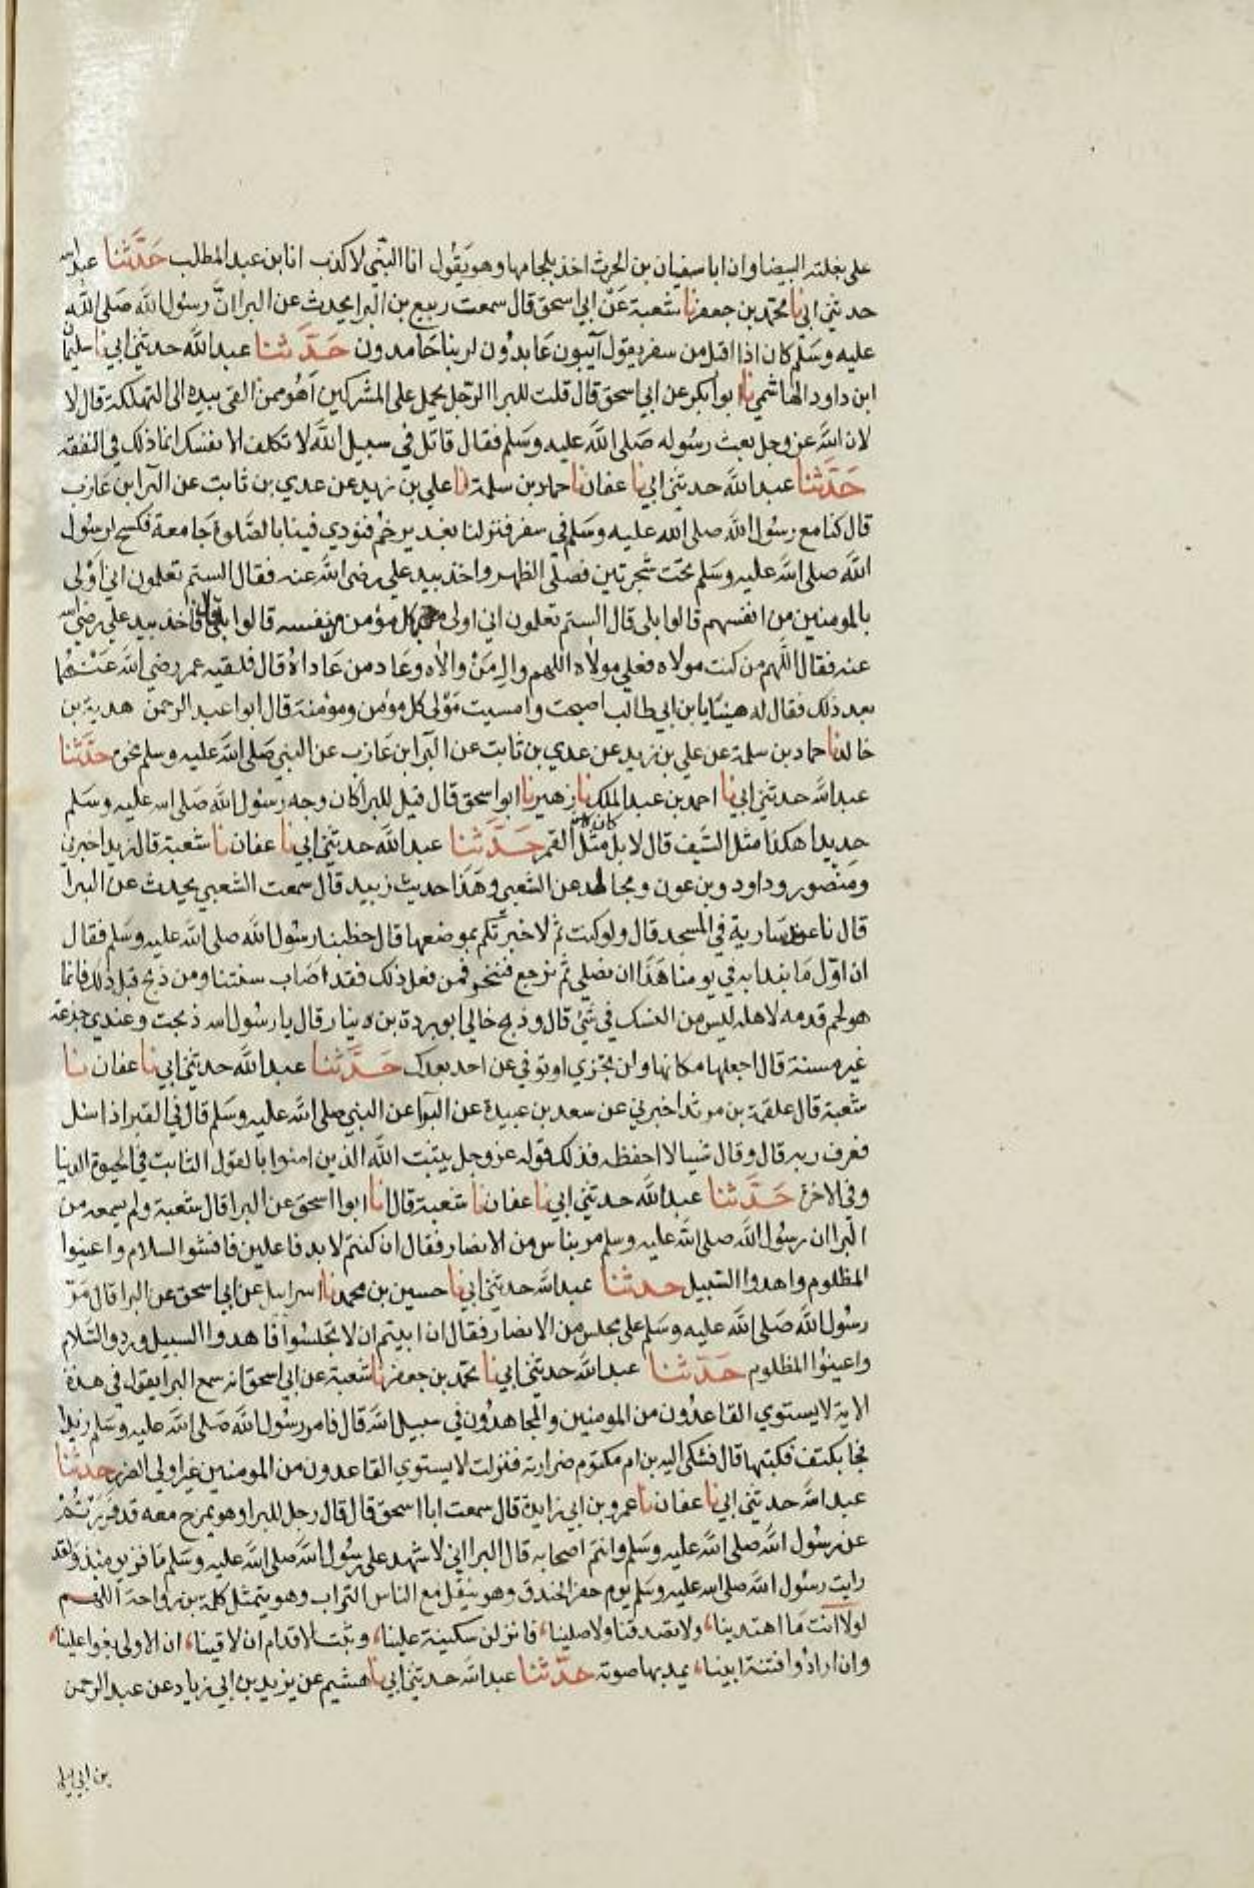 على بغلته البيضا وان ابا سفيان بن الحرث اخذ بلجامها وهو يَقُول انا النّبي لا كذب انا ابن عبد المطلب حَدَّثنا عبد الله
حدثني ابي نا محمّد بن جعفر نا شعبة عَنْ ابي اسحق قال سمعت ربيع بن البرا يحدث عن البرا انَّ رسول الله صَلى الله
عليه وسَلّم كان اذا اقبل من سفر يقول آيبون عَابدُون لربنا حَامدون حَدَّثنا عبد الله حدثني ابي نا سليمان
ابن داود الهاشمي نا ابو بكر عن ابي اسحق قال قلت للبرا الرّجل يحمل على المشركين اَهُو ممن القى بيده الى التهلكة قال لا
لان الله عز وجل بعث رسُوله صَلى الله عليه وسَلم فقال قاتل في سبيل الله لا تكلف الا نفسك انما ذلك في النفقه
حَدَّثنا عبد الله حدثني ابي نا عفان نا حماد بن سلمة نا علي بن زيد عن عدي بن ثابت عن البرا بن عَازب
قال كنا مع رسُول الله صلى الله عليه وسَلم في سفر فنزلنا بغدير خم فنودي فينا بالصَّلوة جَامعة فكسح لرسُول
الله صلى الله عليه وسَلم تحت شجرتين فصلى الظهر واخذ بيد علي رضى الله عنه فقال الستم تعلمون اني اَوْلى
بالمومنين من انفسهم قالوا بلى قال الستم تعلمون اني اولى بكل مؤمن من نفسه قالوا بلى قال فاخذ بيد علي رضى الله
عنه فقال اللّهم من كنت مولاه فعلي مولاه اللهم والِ مَنْ والاه وعَاد من عَاداهُ قال فلقيه عمر رضي الله عَنْهُما
بعد ذلك فقال له هنيئا يا بن ابي طالب اصبحت وامسيت مَوْلى كل مؤمن ومؤمنة قال ابوا عبد الرحمن هدبة بن
خالد نا حماد بن سلمة عن علي بن زيد عن عدي بن ثابت عن البرا بن عَازب عن النبي صَلى الله عليه وسلم نحوه حَدَّثنا
عبد الله حدثني ابي نا احمد بن عبد الملك نا زهير نا ابوا اسحق قال قيل للبرا كان وجه رسول الله صَلى الله عليه وسَلم
حديدا هكذا مثل السَّيف قال لا بل كان مثل القمر حَدَّثنا عبد الله حدثني ابي نا عفان نا شعبة قال زبيد اخبرني
ومنصور وداود وبن عون ومجالد عن الشعبي وهَذَا حديث زبيد قال سمعت الشعبي يحدث عن البرا
قال نا عند سَارية في المسجد قال ولو كنت ثم لاخبرتكم بموضعها قال خطبنا رسُول الله صلى الله عليه وسَلم فقال
ان اوّل مَا نبدا به في يومنا هَذَا ان نصلي ثم نرجع فننحر فمن فعل ذلك فقد اصَاب سنتنا ومن ذبح قبل ذلك فانما
هو لحم قدمه لاهله ليس من النسك في شئ قال وذبح خالي ابو بردة بن دينار قال يا رسُول الله ذبحت وعندي جذعة
خير من مسنة قال اجعلها مكانها ولن تجزي او توفي عن احد بعدك حَدَّثنا عبد الله حدثني ابي نا عفان نا
شعبة قال علقمة بن مرثد اخبرني عن سعد بن عبيدة عن البرا عن النبي صلى الله عليه وسَلم قال في القبر اذا سئل
فعرف ربه قال وقال شيا لا احفظه فذلك قوله عز وجل يثبت الله الذين امنوا بالقول الثابت في الحيوة الدنيا
وفى الاخرة حَدَّثنا عبد الله حدثني ابي نا عفان نا شعبة قال نا ابوا اسحق عن البرا قال شعبة ولم يسمعه من
البرا ان رسُول الله صلى الله عليه وسلم مر بناس من الانصار فقال ان كنتم لا بد فاعلين فافشوا السلام واعينوا
المظلوم واهدوا السّبيل حدثنا عبد الله حدثني ابي نا حسين بن محمد نا اسرايل عن ابي اسحق عن البرا قال مَرّ
رسُول الله صَلى الله عليه وسَلم على مجلس من الانصار فقال ان ابيتم ان لا تجلسُوا فاهدوا السبيل وردو السّلام
واعينُوا المظلوم حَدَّثنا عبد الله حدثني ابي نا محمّد بن جعفر نا شعبة عن ابي اسحق انه سمع البرا يقول في هذه
الاية لا يستوي القاعدُون من المومنين والمجاهدُون في سبيل الله قال فامر رسُول الله صَلى الله عليه وسَلم زيدا
فجا بكتف فكتبها قال فشكى اليه بن ام مكتوم ضرارته فنزلت لا يستوي القاعدون من المومنين غير اولي الضرر حدثنا
عبد الله حدثني ابي نا عفان نا عمرو بن ابي زايدة قال سمعت ابا اسحق قال قال رجل للبرا وهو يمزح معه قد فَرَرْتُمْ
عن رسُول الله صلى الله عليه وسَلم وانتم اصحابه قال البرا اني لاشهد على رسُول الله صلى الله عليه وسَلم ما فر يومئذ ولقد
رايت رسُول الله صلى الله عليه وسَلم يوم حفر الخندق وهو ينقل مع الناس التراب وهو يتمثل كلمة بن رواحة اللهم
لولا انت مَا اهتدينا، ولا تصدقنا ولا صلينا، فانزلن سكينة علينا، وثبت الاقدام ان لاقينا، ان الاولى بغوا علينا،
وان ارادُوا فتنة ابينا، يمد بها صوته حدَّثنا عبد الله حدثني ابي نا هشيم عن يزيد بن ابي زياد عن عبد الرحمن
بن ابي ليلى